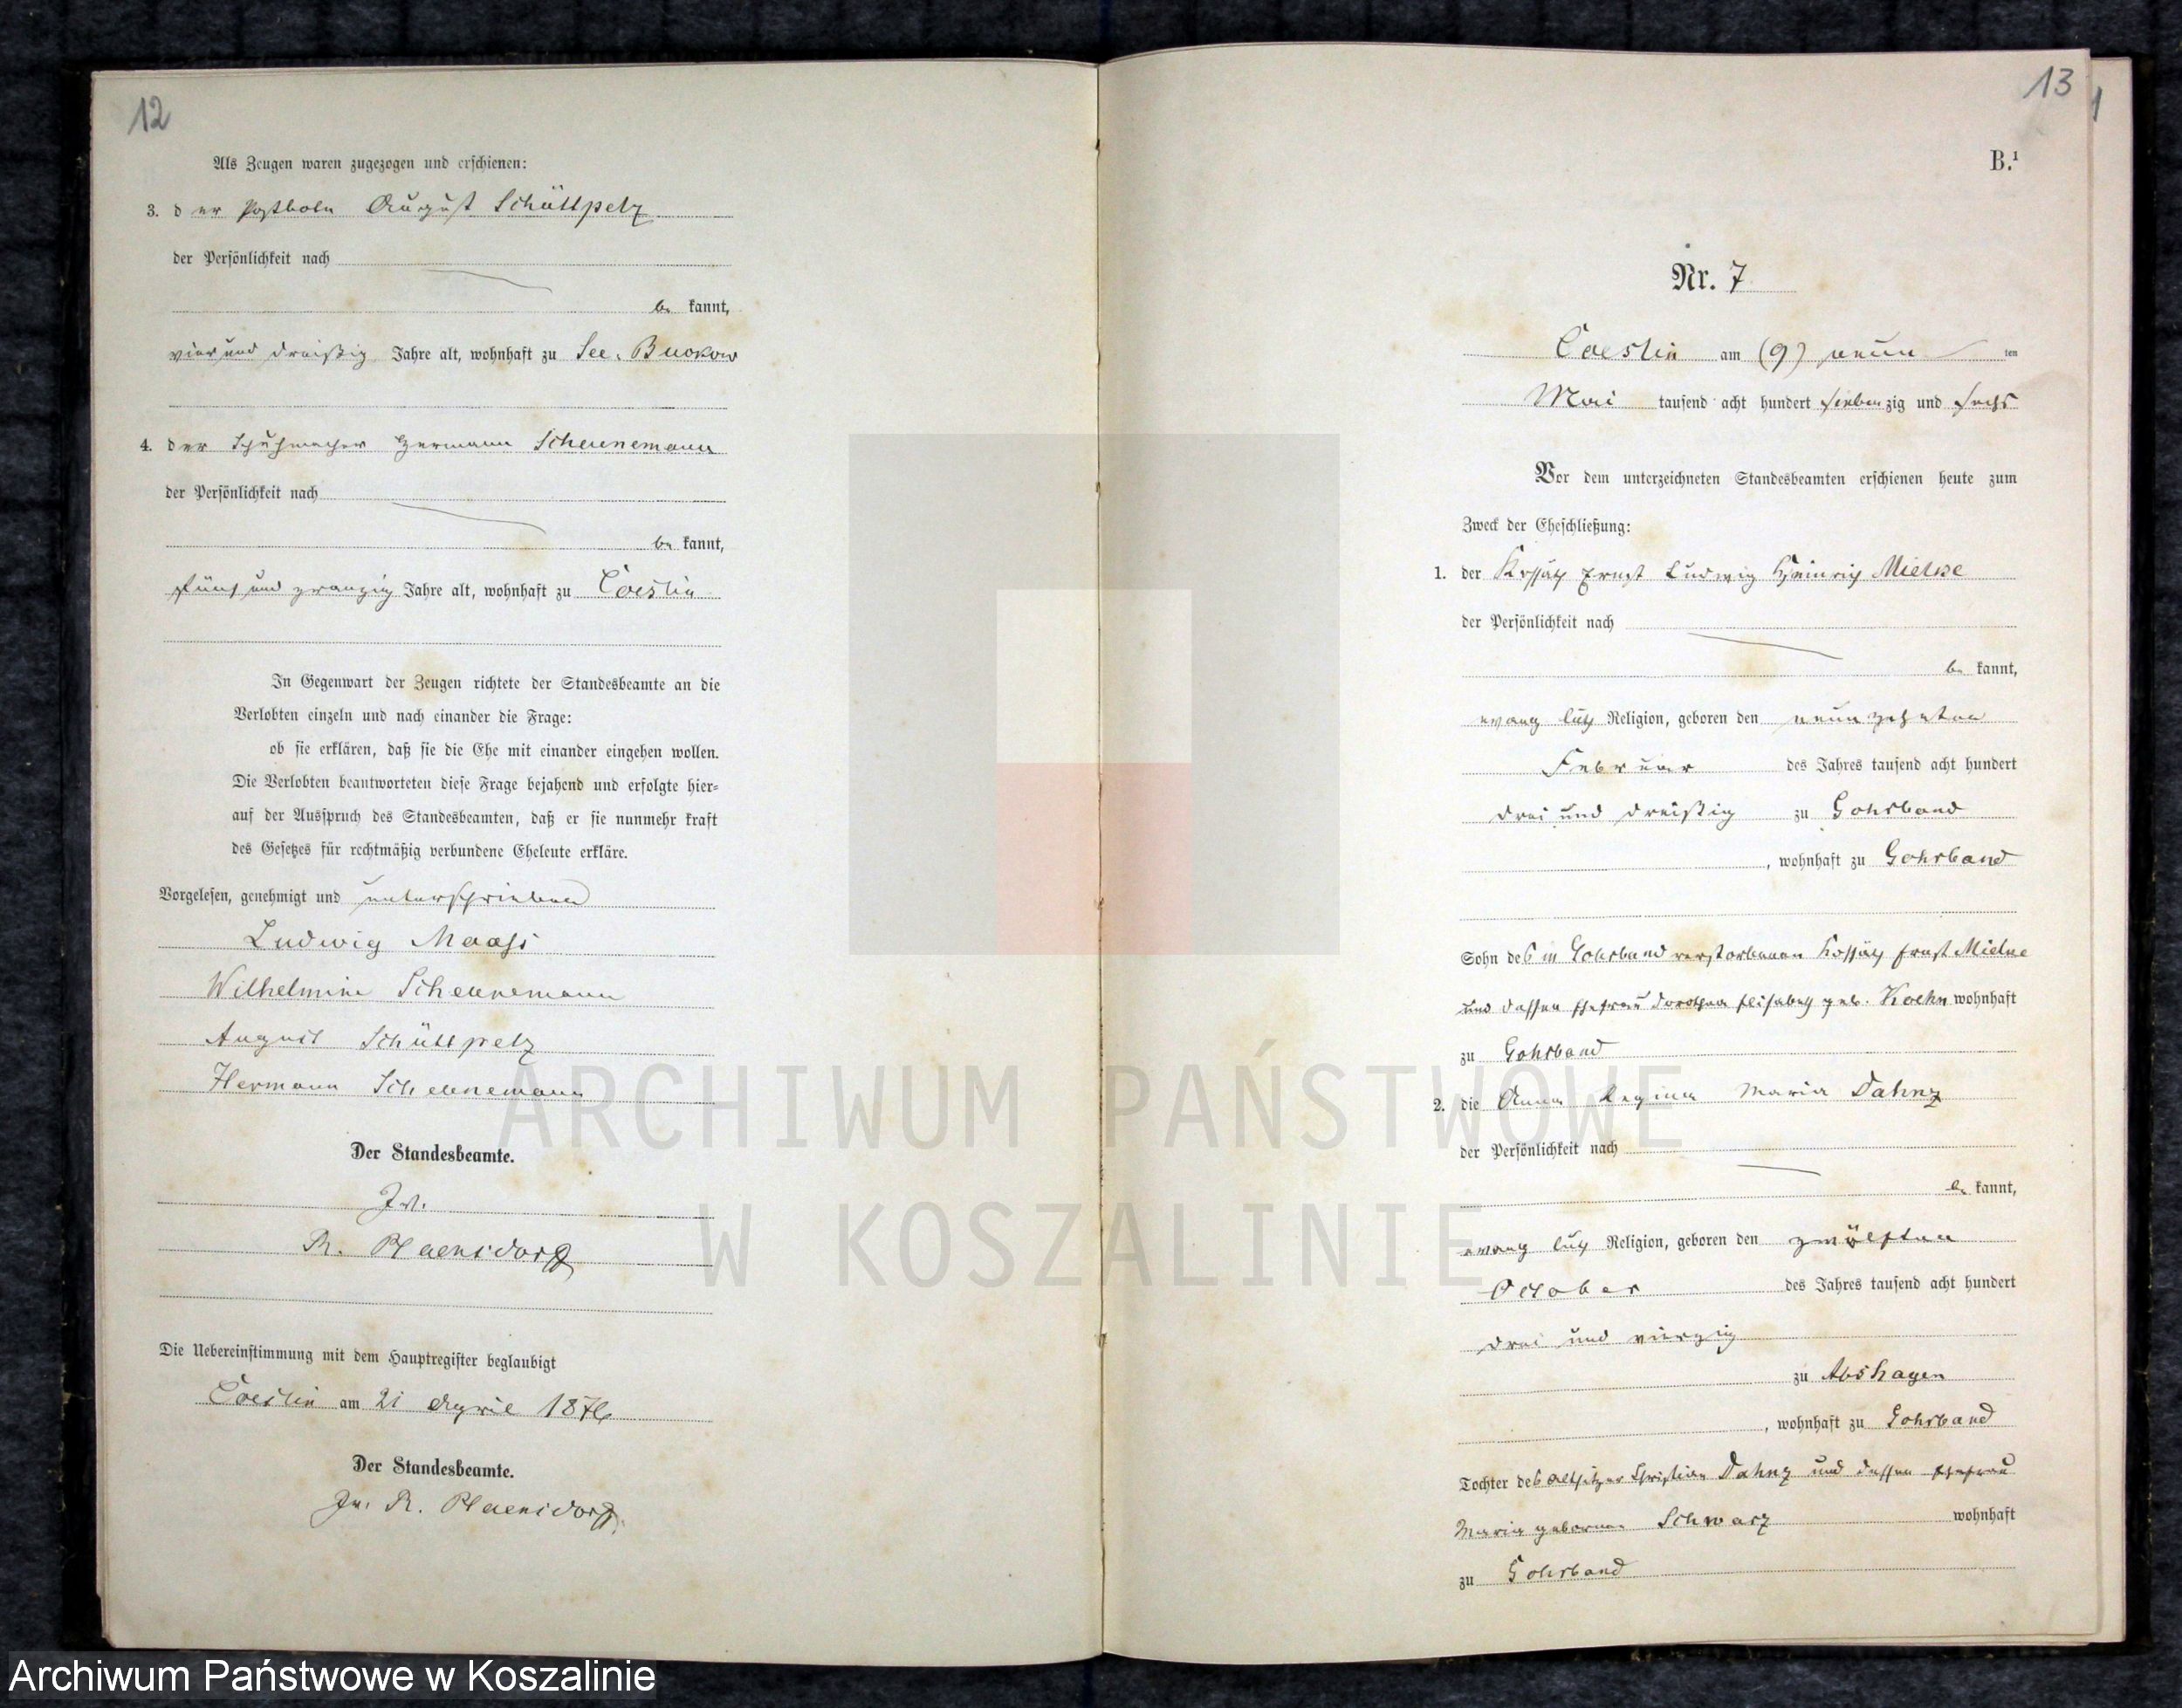 12
Als Zeugen waren zugezogen und erschienen:
3. der Postbote August Schüttpelz
der Persönlichkeit nach
be kannt,
vier und dreißig Jahre alt, wohnhaft zu See-Buckow
4. der Schuhmacher Hermann Scheunemann
der Persönlichkeit nach
be kannt,
fünf und zwanzig Jahre alt, wohnhaft zu Coeslin
In Gegenwart der Zeugen richtete der Standesbeamte an die
Verlobten einzeln und nach einander die Frage:
ob sie erklären, daß sie die Ehe mit einander eingehen wollen.
Die Verlobten beantworteten diese Frage bejahend und erfolgte hier-
auf der Ausspruch des Standesbeamten, daß er sie nunmehr kraft
des Gesetzes für rechtmäßig verbundene Eheleute erkläre.
Vorgelesen, genehmigt und unterschrieben
Ludwig Maass
Wilhelmine Scheunemann
August Schüttpelz
Hermann Scheunemann
Der Standesbeamte.
R.
Die Uebereinstimmung mit dem Hauptregister beglaubigt
Coeslin am 21 April 1876
Der Standesbeamte.
R.
13
B.¹
Nr. 7
Coeslin am (9) neun ten
Mai tausend acht hundert siebenzig und sechs
Vor dem unterzeichneten Standesbeamten erschienen heute zum
Zweck der Eheschließung:
1. der Kossäth Ernst Ludwig Heinrich Mielke
der Persönlichkeit nach
be kannt,
evang luth Religion, geboren den neunzehnten
Februar des Jahres tausend acht hundert
drei und dreißig zu Gohrband
, wohnhaft zu Gohrband
Sohn des in Gohrband verstorbenen Kossäth Ernst Mielke
und dessen Ehefrau Dorothea Elisabeth geb. Koehn wohnhaft
zu Gohrband
2. die Anna Regina Maria Dahnz
der Persönlichkeit nach
be kannt,
evang luth Religion, geboren den zwölften
October des Jahres tausend acht hundert
drei und vierzig
zu Abshagen
, wohnhaft zu Gohrband
Tochter des Altsitzer Christian Dahnz und dessen Ehefrau
Maria geborene Schwarz wohnhaft
zu Gohrband
ARCHIWUM PAŃSTWOWE
W KOSZALINIE
Archiwum Państwowe w Koszalinie